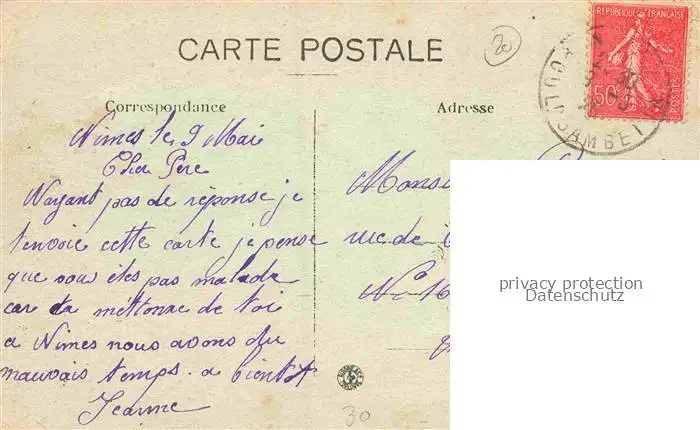 CARTE POSTALE
20
REPUBLIQUE FRANÇAISE
50
GAMBET
Correspondance
Adresse
Nimes le 9 Mai
Cher Père
N'ayant pas de réponse je
t'envoie cette carte je pense
que vous êtes pas malade
car ça m'éttonne de toi
a Nimes nous avons du
mauvais temps. a bientôt
Jeanne
Monsi
rue de
No 16
privacy protection
Datenschutz
30